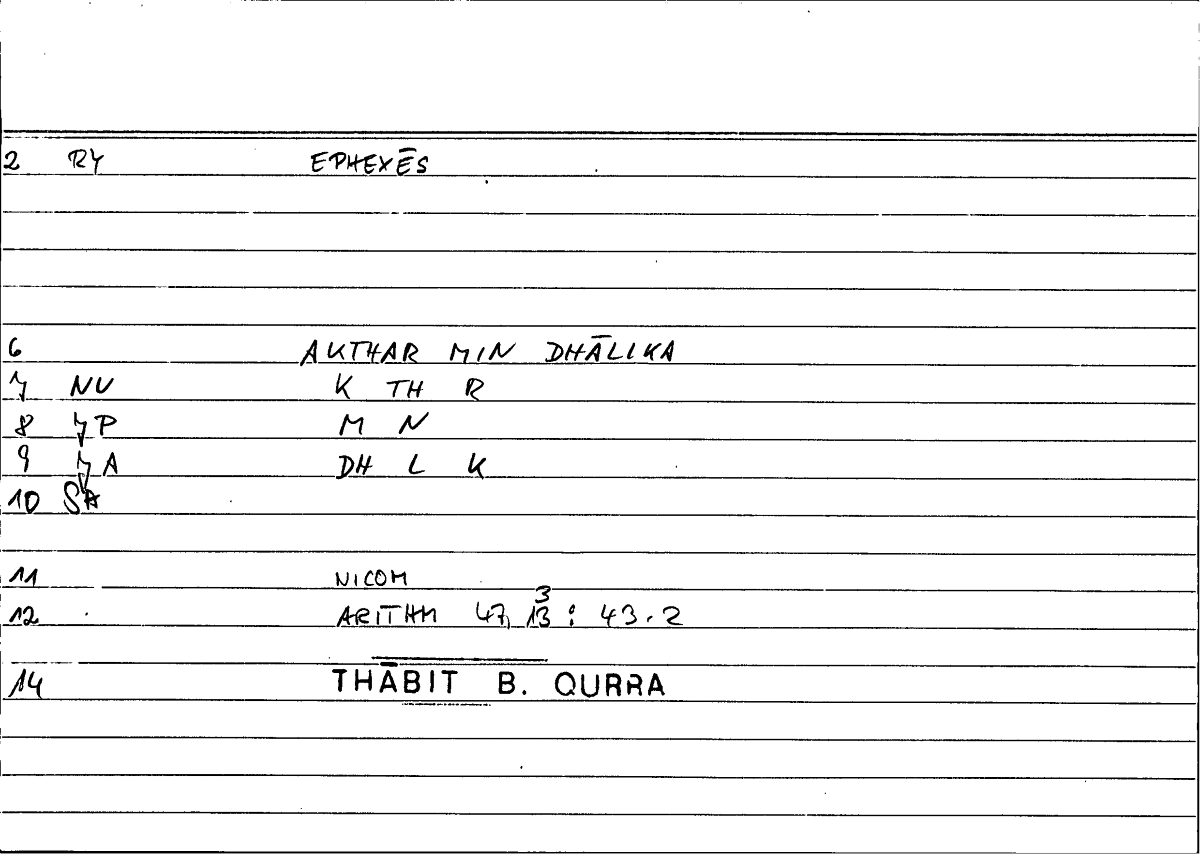 2 RY EPHEXĒS
6 AKTHAR MIN DHĀLIKA
7 NU K TH R
8 P M N
9 A DH L K
10
11 NICOM
3
12 ARITHM 47, 13 : 43.2
14 THĀBIT B. QURRA